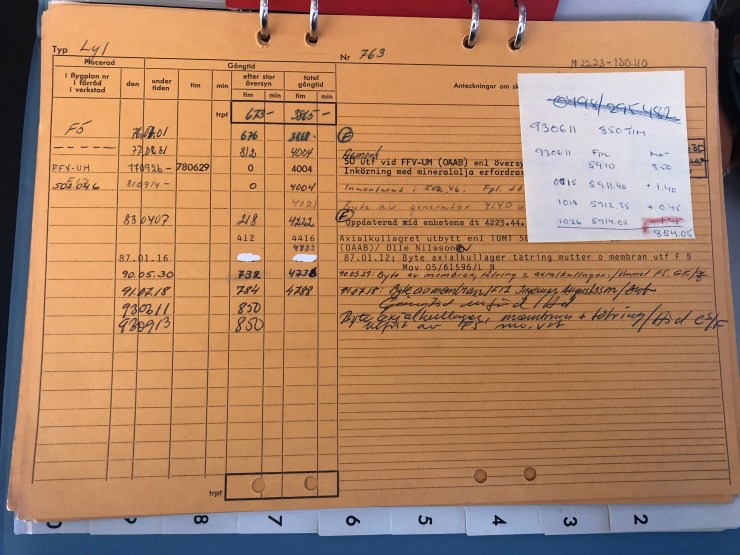 Typ Ly1
Nr 763
M2223-130110
Placerad
Gångtid
i flygplan nr
i förråd
i verkstad
den
under
tiden
tim
min
efter stor
översyn
total
gångtid
tim min tim min
Anteckningar om sk
trpf 673- 3865-
F5 76.08.01 676 3868-
77.08.31 812 4004 Remont
SÖ utf vid FFV-UM (OAAB) enl översy
FFV-UM 770926- 780629 0 4004 Inkörning med mineralolja erfordras
502.046 810914- 0 4004 Inmonterad i 502.46. Fpl. dt
4221 Byte av generator
830407 218 4222 Uppdaterad vid enhetens dt 4223.44.
412 4416 Axialkullagret utbytt enl (OM) 50
(OAAB)/ Olle Nilsson
87.01.16 87.01.12; Byte axialkullager tätring mutter o membran utf F 5
Mov 05/61596/L N
90.05.30 732 4736 90.05.29: Byte av membran, tätring o axialkullager./Hamel F5.
91.07.18 784 4788 91.07.18: Byte av membran/F12 Ingemar Augustsson/
930611 850 Gångtid införd /Hd
930913 850 Byte axialkullager, membran + tätring/Hsd C5/F
utfört av F5 mo. utf
trpf
0498/295482
930611 850 TIM.
930611 FPL mo-
5910 850
0815 5911.40 + 1.40
1018 5912.25 + 0.45
1026 5914.05
854.05
9 8 7 6 5 4 3 2